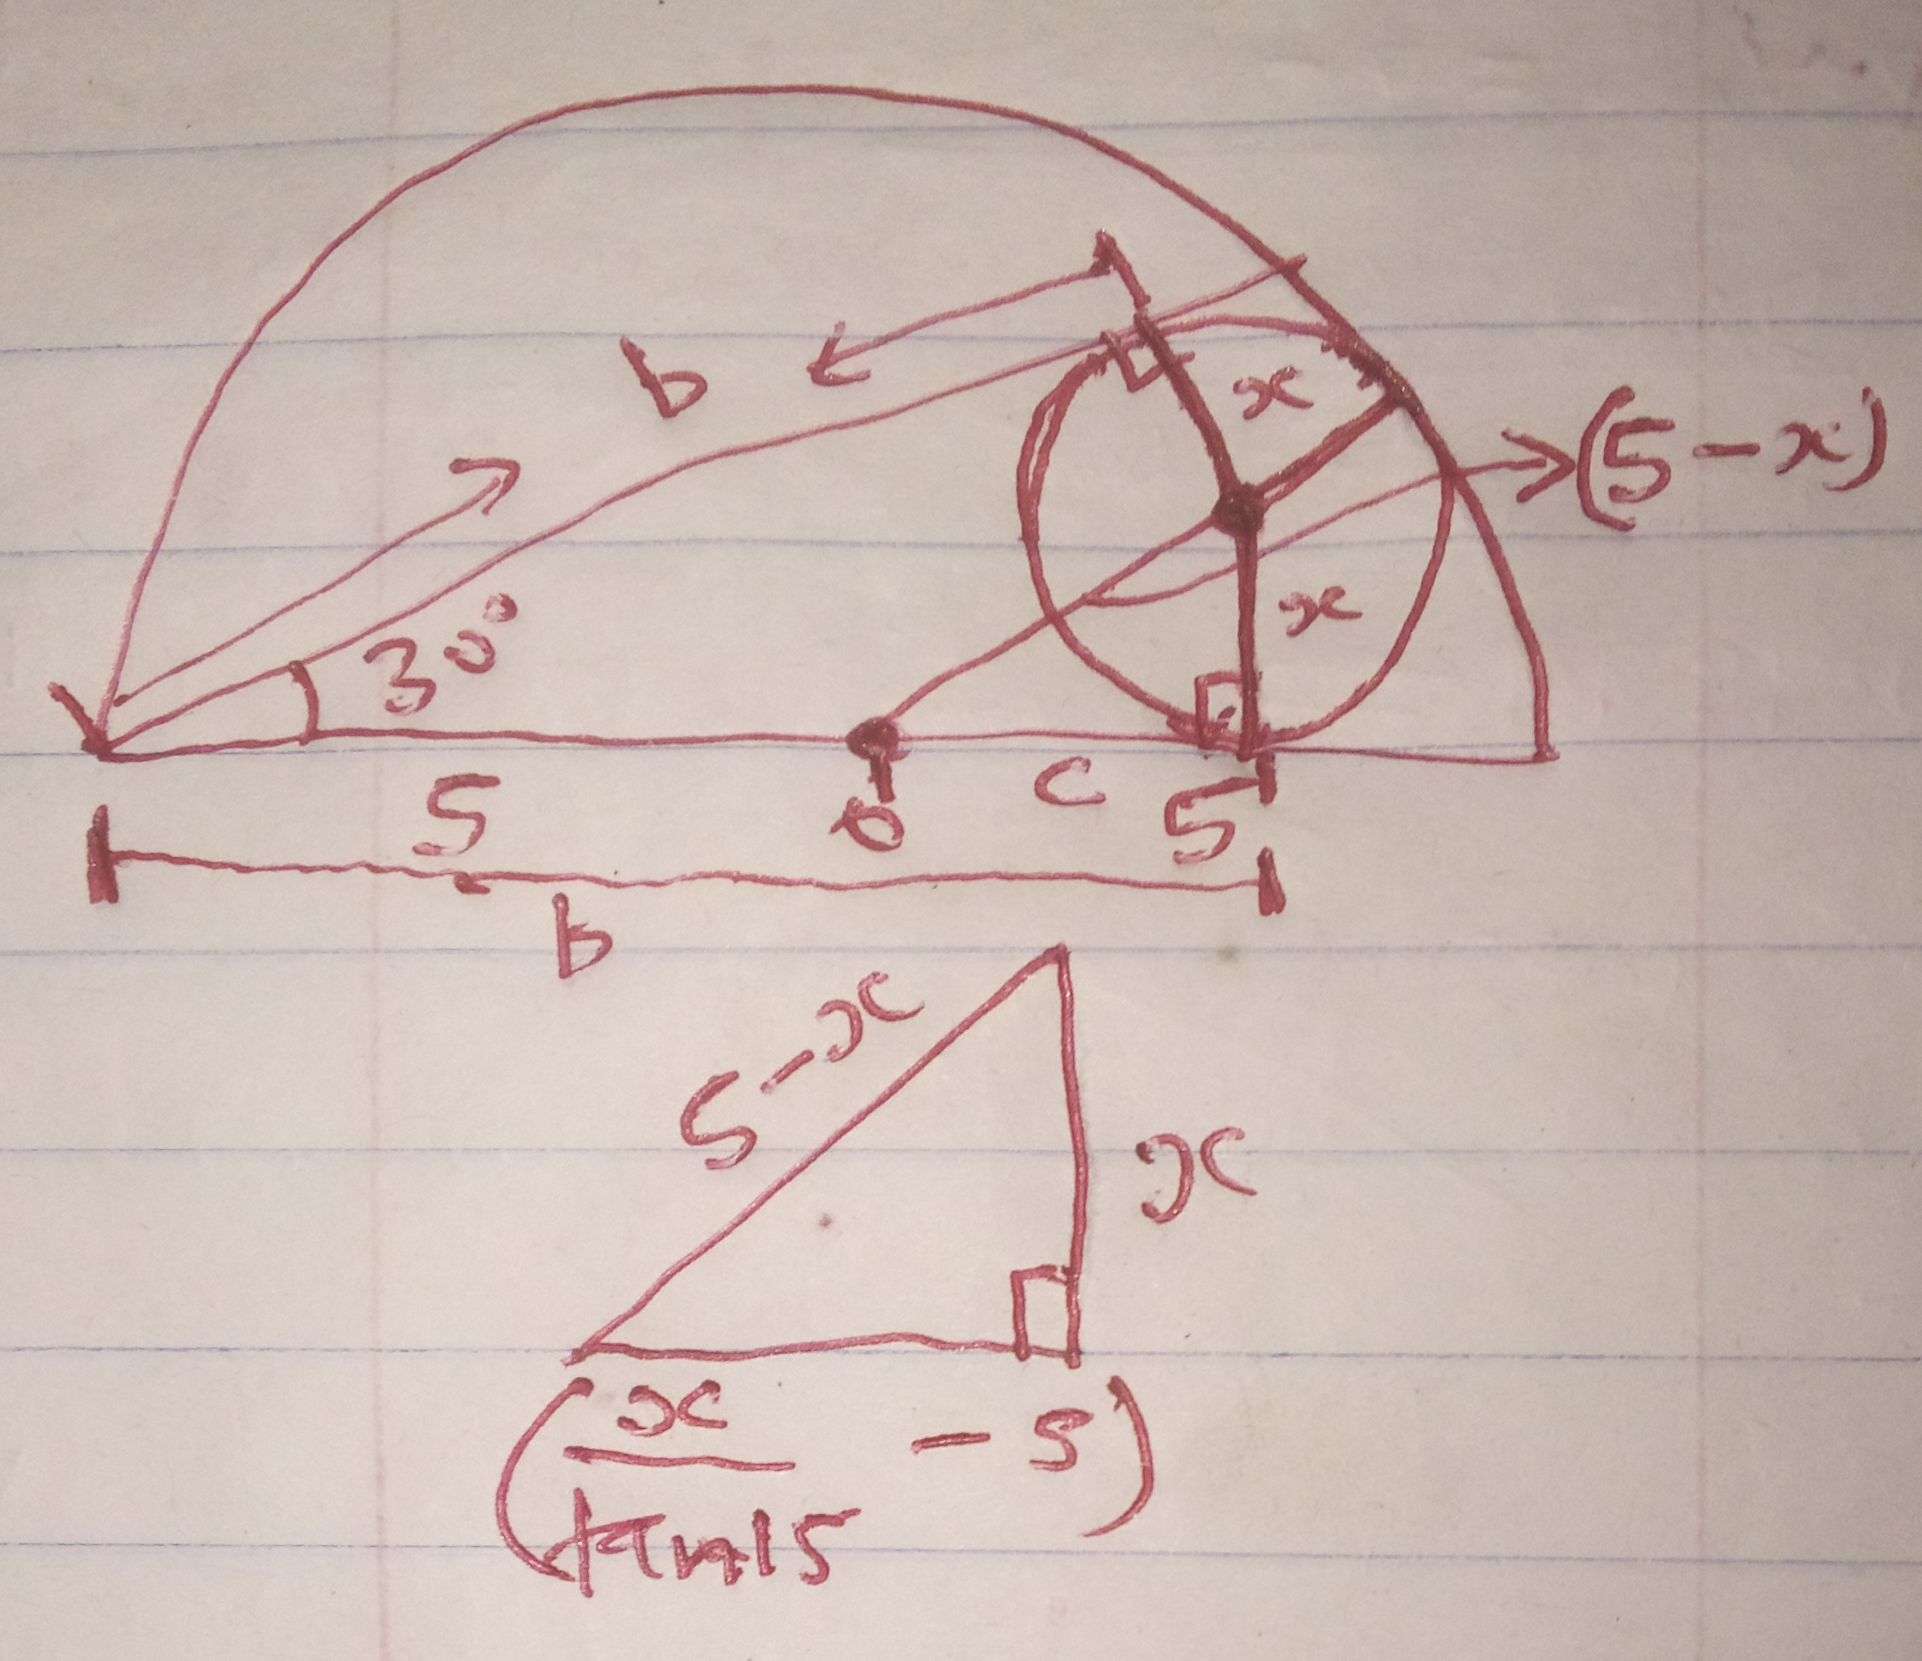 b
x
(5-x)
x
30°
5
o
c
5
b
5-x
x
(x/tan15 - 5)